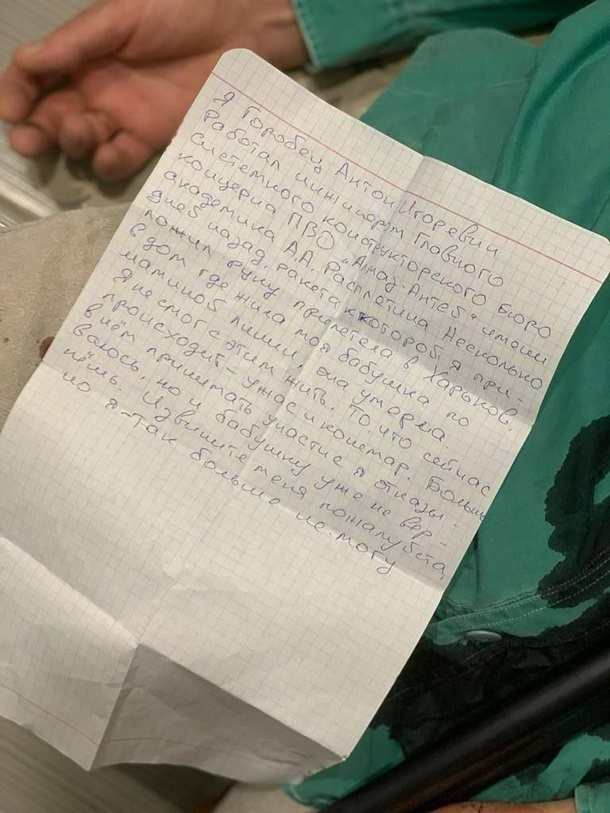 Я Горобец Антон Игоревич
Работал инжинером Главного
системного конструкторского бюро
концерна ПВО "Алмаз-Антей" имени
академика А.А. Расплетина Несколько
дней назад, ракета к которой я при-
ложил руку прилетела в Харьков.
в дом где жила моя бабушка по
маминой линии, она умерла
Я не смог с этим жить. То что сейчас
происходит - ужас и кошмар. Больше
в нём принимать участие я отказы-
ваюсь, но и бабушку уже не вер-
нёшь. Извините меня пожалуйста,
но я - так больше не могу